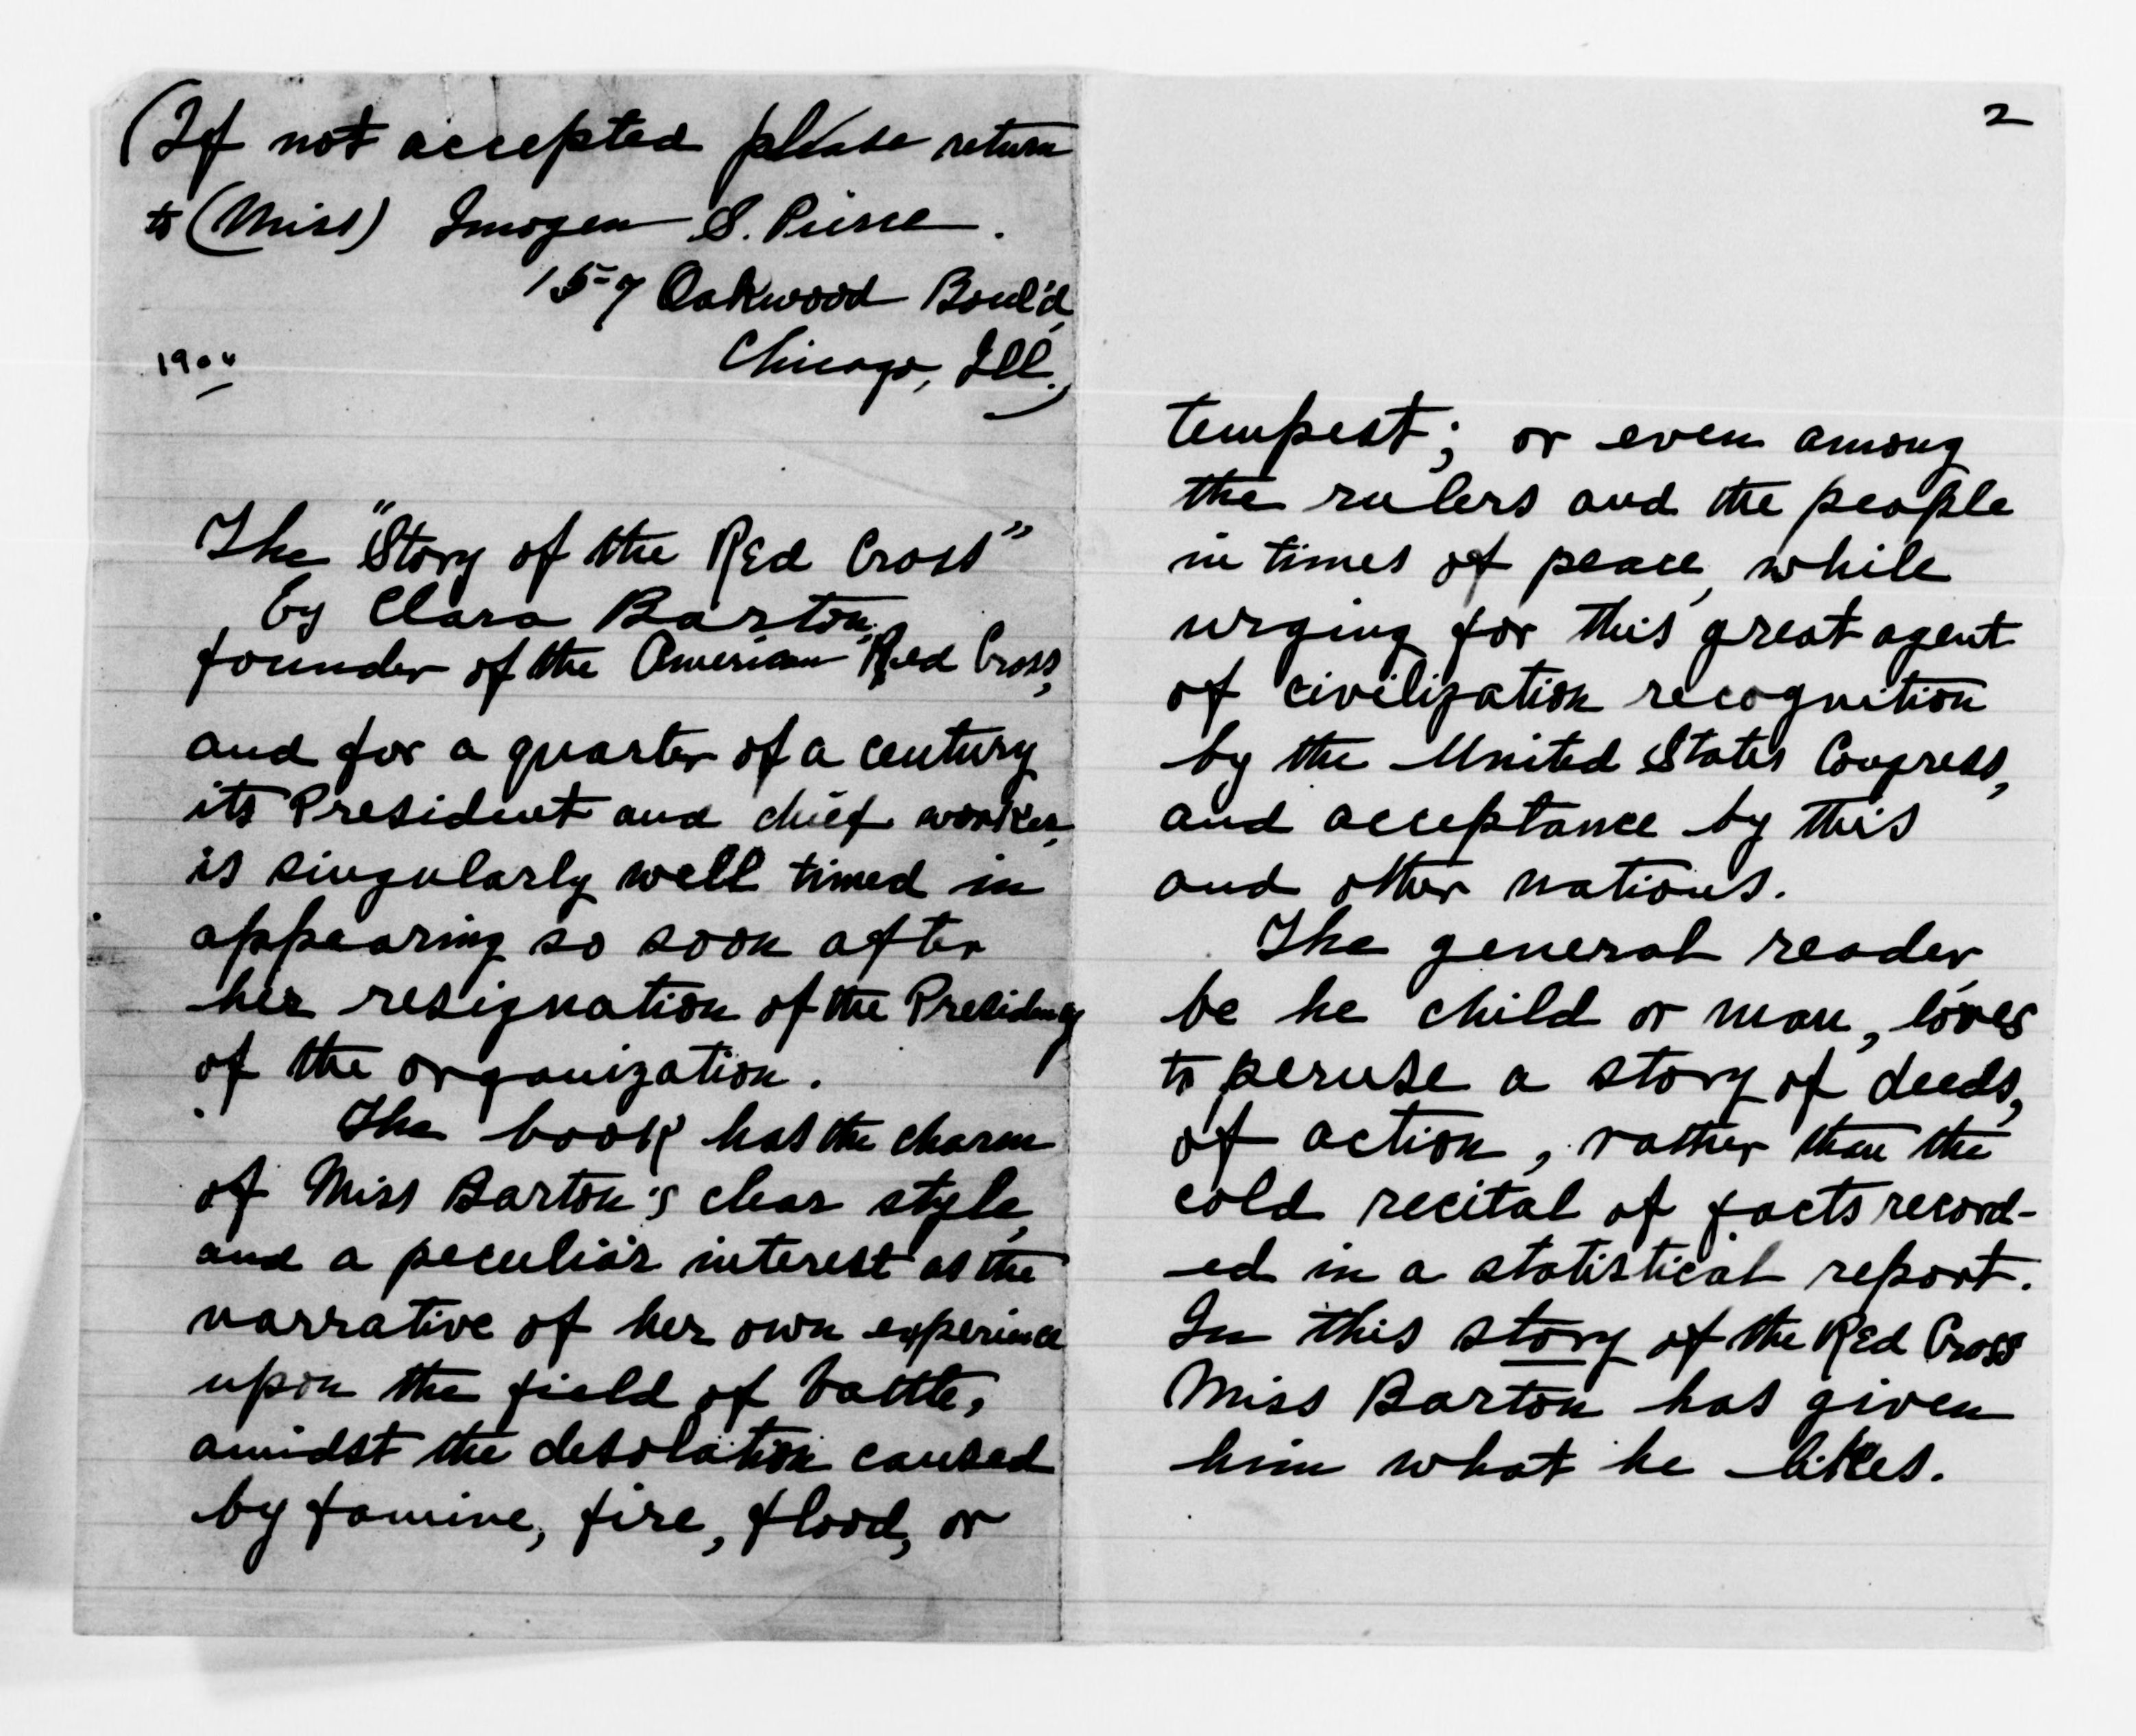 (If not accepted please return
to (Miss) Imogen S. Pierce.
157 Oakwood Boul'd,
Chicago, Ill.)
1904
The "Story of the Red Cross"
by Clara Barton,
founder of the American Red Cross,
and for a quarter of a century
its President and chief worker,
is singularly well timed in
appearing so soon after
her resignation of the Presidency
of the organization.
The book has the charm
of Miss Barton's clear style,
and a peculiar interest as the
narrative of her own experience
upon the field of battle,
amidst the desolation caused
by famine, fire, flood, or
2
tempest; or even among
the rulers and the people
in times of peace, while
urging for this great agent
of civilization recognition
by the United States Congress,
and acceptance by this
and other nations.
The general reader
be he child or man, loves
to peruse a story of deeds,
of action, rather than the
cold recital of facts record-
ed in a statistical report.
In this story of the Red Cross
Miss Barton has given
him what he likes.